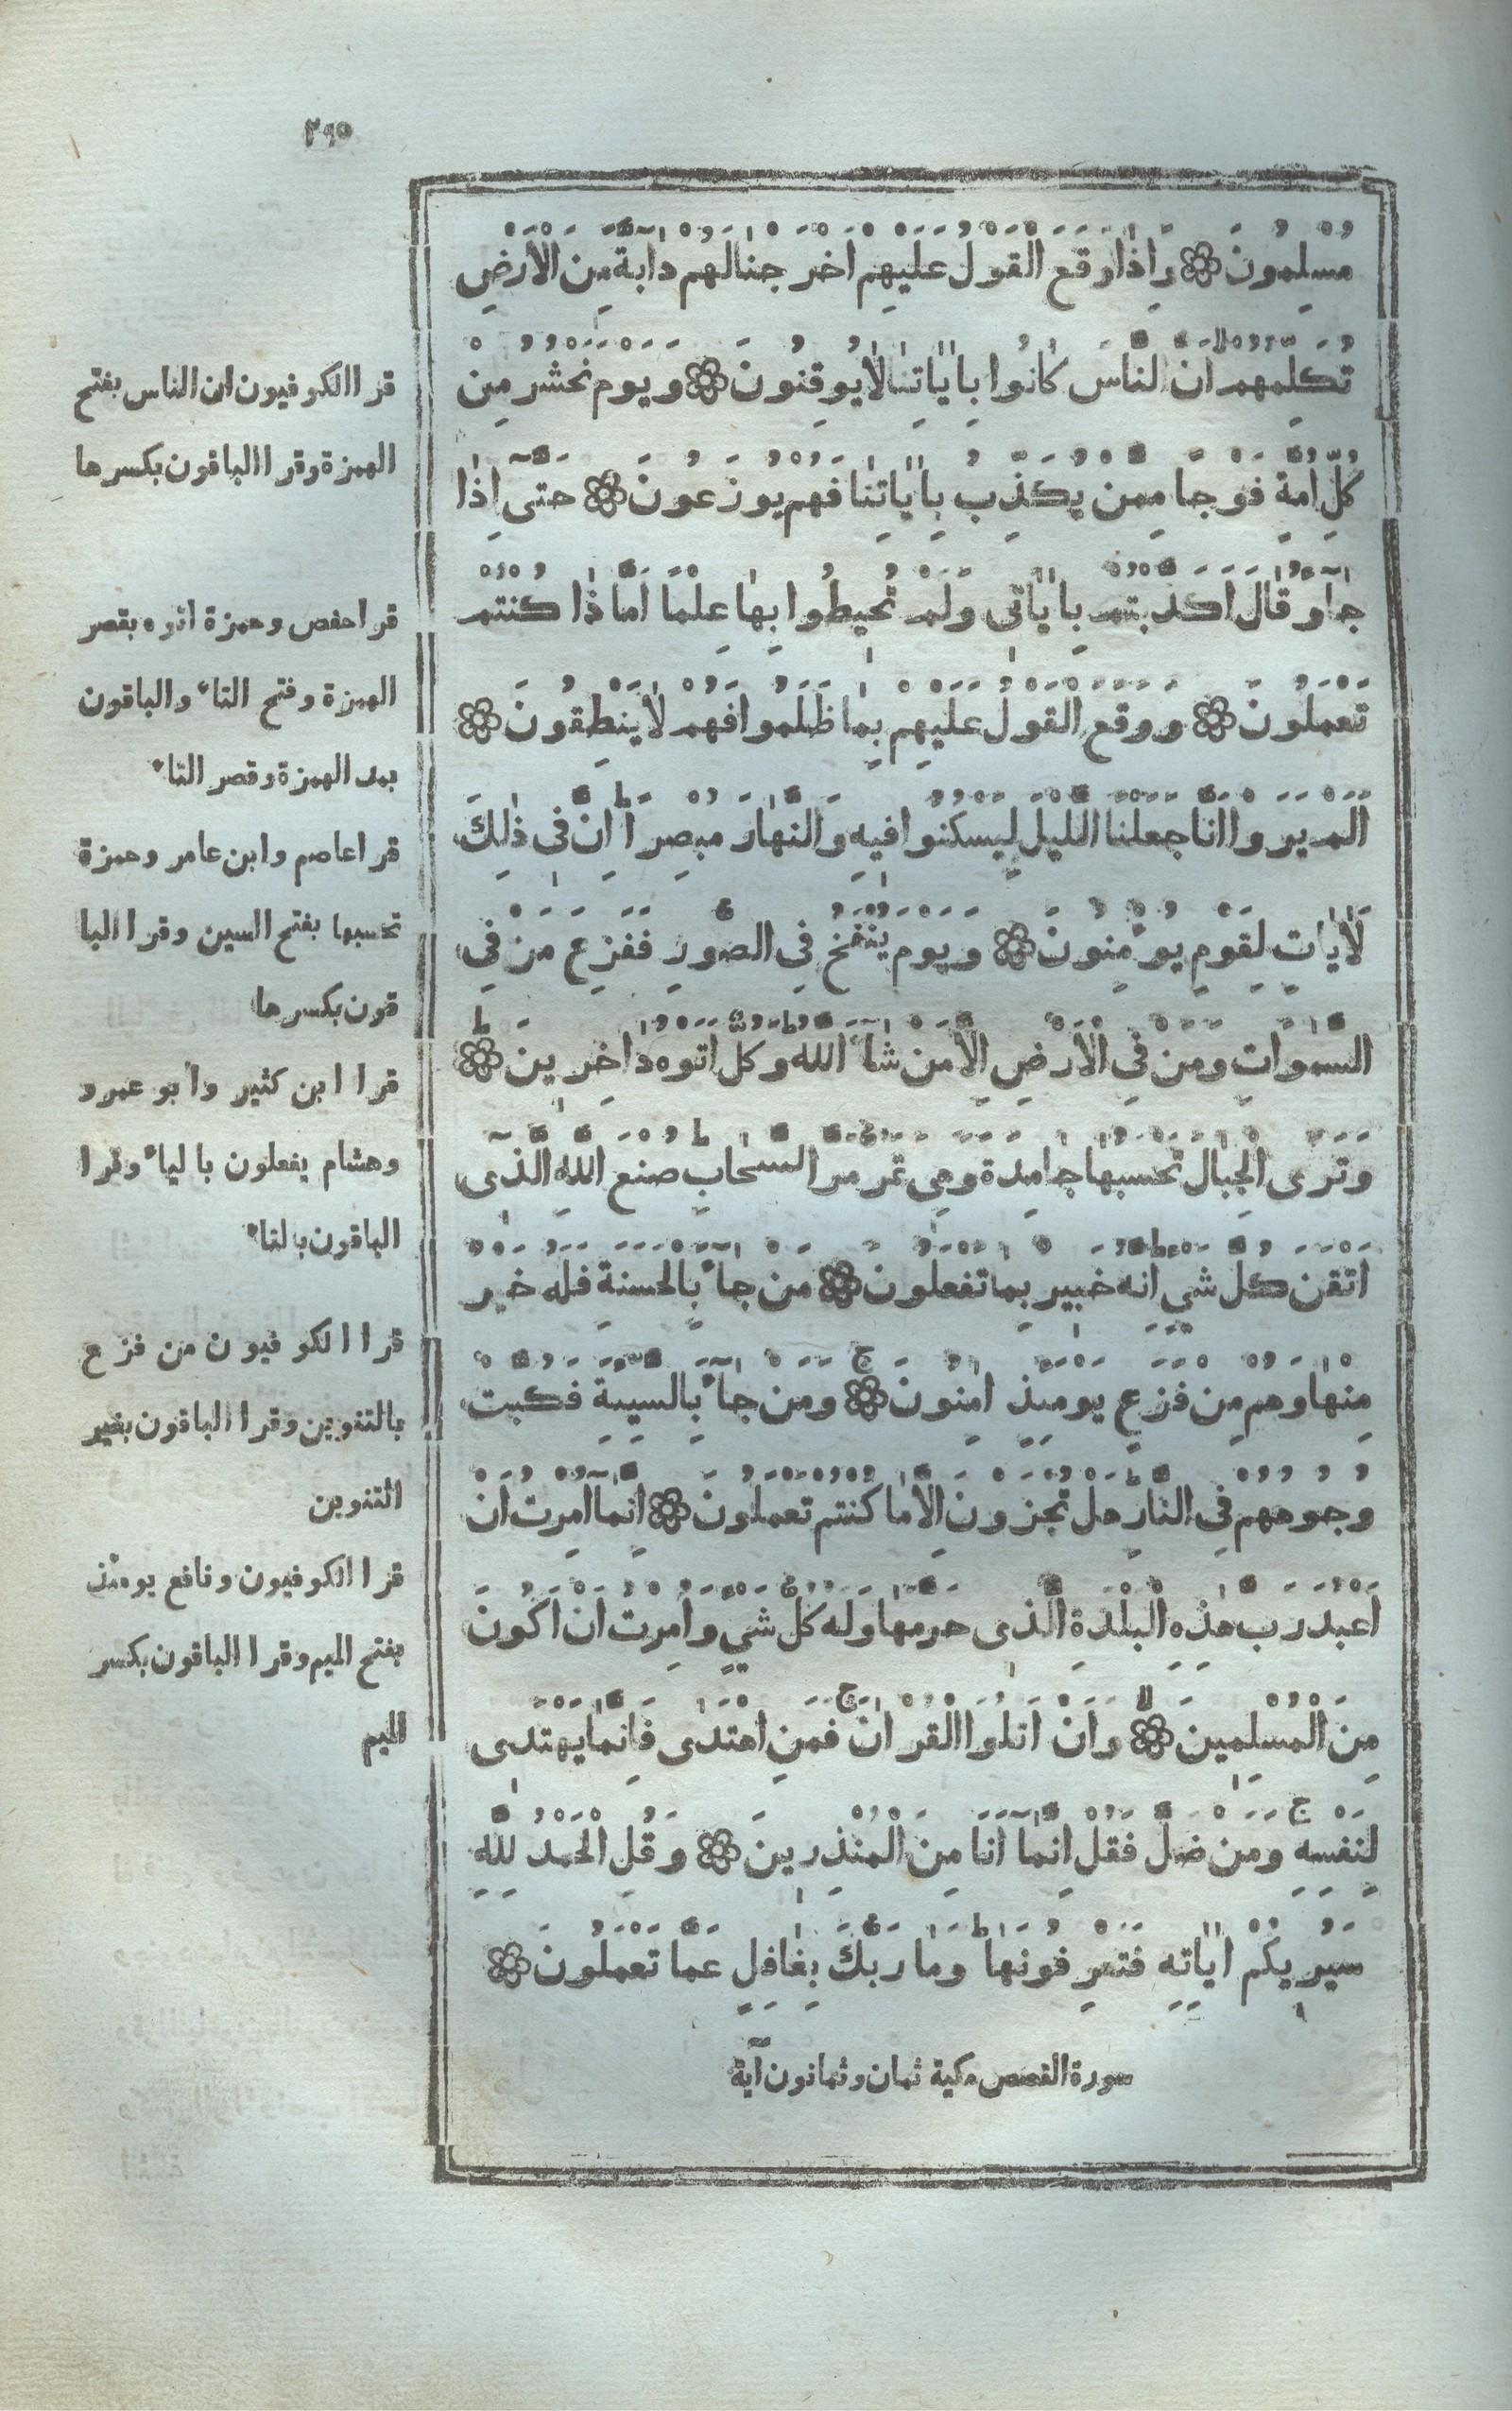 ٢٩٥
مُسْلِمُونَ ۞ وَاِذَا وَقَعَ الْقَوْلُ عَلَيْهِمْ اَخْرَجْنَا لَهُمْ دَآبَّةً مِنَ الْاَرْضِ
تُكَلِّمُهُمْ اَنَّ النَّاسَ كَانُوا بِاٰيَاتِنَا لَا يُوقِنُونَ ۞ وَيَوْمَ نَحْشُرُ مِنْ
كُلِّ اُمَّةٍ فَوْجًا مِمَّنْ يُكَذِّبُ بِاٰيَاتِنَا فَهُمْ يُوزَعُونَ ۞ حَتّٰى اِذَا
جَآؤُ قَالَ اَكَذَّبْتُمْ بِاٰيَاتِى وَلَمْ تُحِيطُوا بِهَا عِلْمًا اَمَّا ذَا كُنْتُمْ
تَعْمَلُونَ ۞ وَوَقَعَ الْقَوْلُ عَلَيْهِمْ بِمَا ظَلَمُوا فَهُمْ لَا يَنْطِقُونَ ۞
اَلَمْ يَرَوْا اَنَّا جَعَلْنَا الَّيْلَ لِيَسْكُنُوا فِيهِ وَالنَّهَارَ مُبْصِرًا ط اِنَّ فِى ذٰلِكَ
لَاٰيَاتٍ لِقَوْمٍ يُؤْمِنُونَ ۞ وَيَوْمَ يُنْفَخُ فِى الصُّورِ فَفَزِعَ مَنْ فِى
السَّمٰوَاتِ وَمَنْ فِى الْاَرْضِ اِلَّا مَنْ شَآءَ اللّٰهُ ط وَكُلٌّ اَتَوْهُ دَاخِرِينَ ط ۞
وَتَرَى الْجِبَالَ تَحْسَبُهَا جَامِدَةً وَهِىَ تَمُرُّ مَرَّ السَّحَابِ ط صُنْعَ اللّٰهِ الَّذِىٓ
اَتْقَنَ كُلَّ شَيْءٍ ط اِنَّهُ خَبِيرٌ بِمَا تَفْعَلُونَ ۞ مَنْ جَآءَ بِالْحَسَنَةِ فَلَهُ خَيْرٌ
مِنْهَا وَهُمْ مِنْ فَزَعٍ يَوْمَئِذٍ اٰمِنُونَ ج ۞ وَمَنْ جَآءَ بِالسَّيِّئَةِ فَكُبَّتْ
وُجُوهُهُمْ فِى النَّارِ ط هَلْ تُجْزَوْنَ اِلَّا مَا كُنْتُمْ تَعْمَلُونَ ۞ اِنَّمَآ اُمِرْتُ اَنْ
اَعْبُدَ رَبَّ هٰذِهِ الْبَلْدَةِ الَّذِى حَرَّمَهَا وَلَهُ كُلُّ شَيْءٍ وَاُمِرْتُ اَنْ اَكُونَ
مِنَ الْمُسْلِمِينَ لا ۞ وَاَنْ اَتْلُوَا الْقُرْاٰنَ ج فَمَنِ اهْتَدٰى فَاِنَّمَا يَهْتَدِى
لِنَفْسِهِ ج وَمَنْ ضَلَّ فَقُلْ اِنَّمَآ اَنَا مِنَ الْمُنْذِرِينَ ۞ وَقُلِ الْحَمْدُ لِلّٰهِ
سَيُرِيكُمْ اٰيَاتِهِ فَتَعْرِفُونَهَا ط وَمَا رَبُّكَ بِغَافِلٍ عَمَّا تَعْمَلُونَ ۞
سورة القصص مكية ثمان وثمانون آية
قرا الكوفيون ان الناس بفتح
الهمزة وقرا الباقون بكسرها
قرا حفص وحمزة اتوه بقصر
الهمزة وفتح التاء والباقون
بمد الهمزة وقصر التاء
قرا عاصم وابن عامر وحمزة
تحسبها بفتح السين وقرا البا
قون بكسرها
قرا ابن كثير وابو عمرو
وهشام يفعلون بالياء وقرا
الباقون بالتاء
قرا الكوفيون من فزع
بالتنوين وقرا الباقون بغير
التنوين
قرا الكوفيون ونافع يومئذ
بفتح الميم وقرا الباقون بكسر
الميم